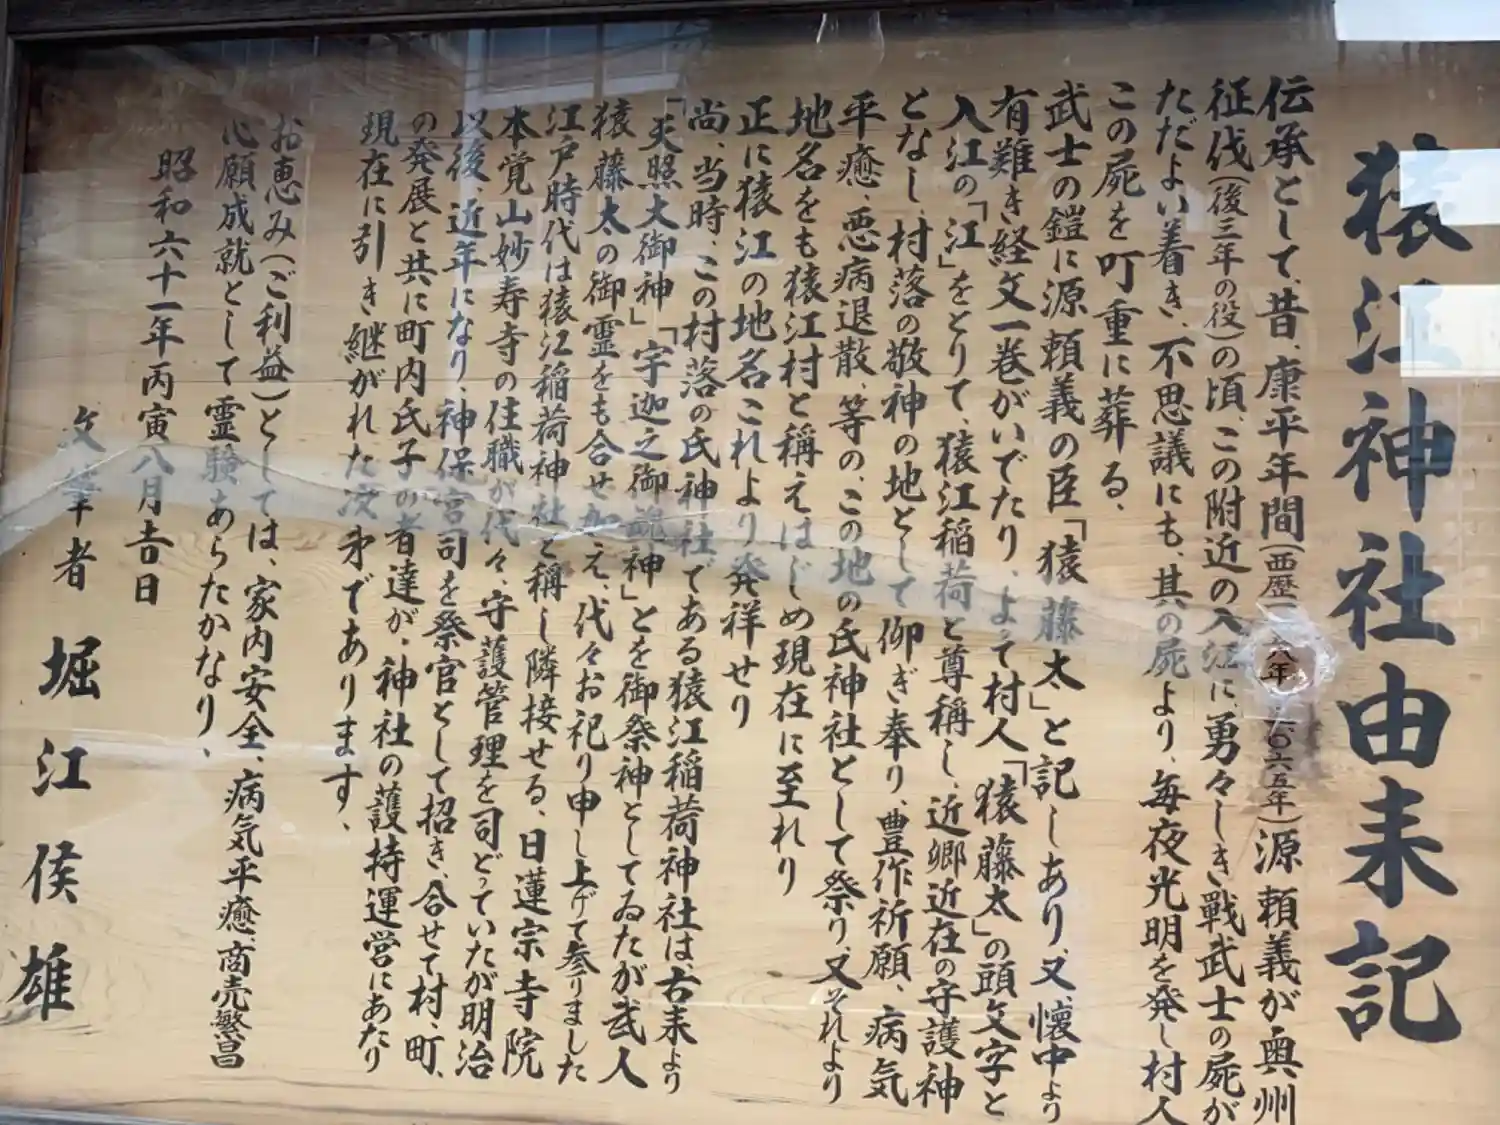 猿江神社由来記
伝承として、昔、康平年間(西歴一 八年 一〇六五年)源頼義が奥州
征伐(後三年の役)の頃、この附近の入江に、勇々しき戦武士の屍が
ただよい着き、不思議にも、其の屍より、毎夜光明を発し村人
この屍を叮重に葬る、
武士の鎧に源頼義の臣「猿藤太」と記しあり、又、懐中より
有難き経文一巻がいでたり、よって村人「猿藤太」の頭文字と
入江の「江」をとりて、猿江稲荷と尊稱し、近郷近在の守護神
となし、村落の敬神の地として仰ぎ奉り、豊作祈願、病気
平癒、悪病退散、等の、この地の氏神社として祭り、又それより
地名をも猿江村と稱えはじめ現在に至れり
正に猿江の地名これより発祥せり
尚、当時、この村落の氏神社である猿江稲荷神社は、古来より
「天照大御神」「宇迦之御魂神」とを御祭神としてゐたが武人
猿藤太の御霊をも合せ加え、代々お祀り申し上げて参りました
江戸時代は猿江稲荷神社と稱し隣接せる、日蓮宗寺院
本覚山妙寿寺の住職が代々、守護管理を司どっていたが明治
以後、近年になり、神保宮司を祭官として招き、合せて村、町、
の発展と共に町内氏子の者達が、神社の護持運営にあたり
現在に引き継がれた次第であります、
お恵み(ご利益)としては、家内安全、病気平癒、商売繁昌
心願成就として霊験あらたかなり、
昭和六十一年丙寅八月吉日
文筆者 堀江侯雄